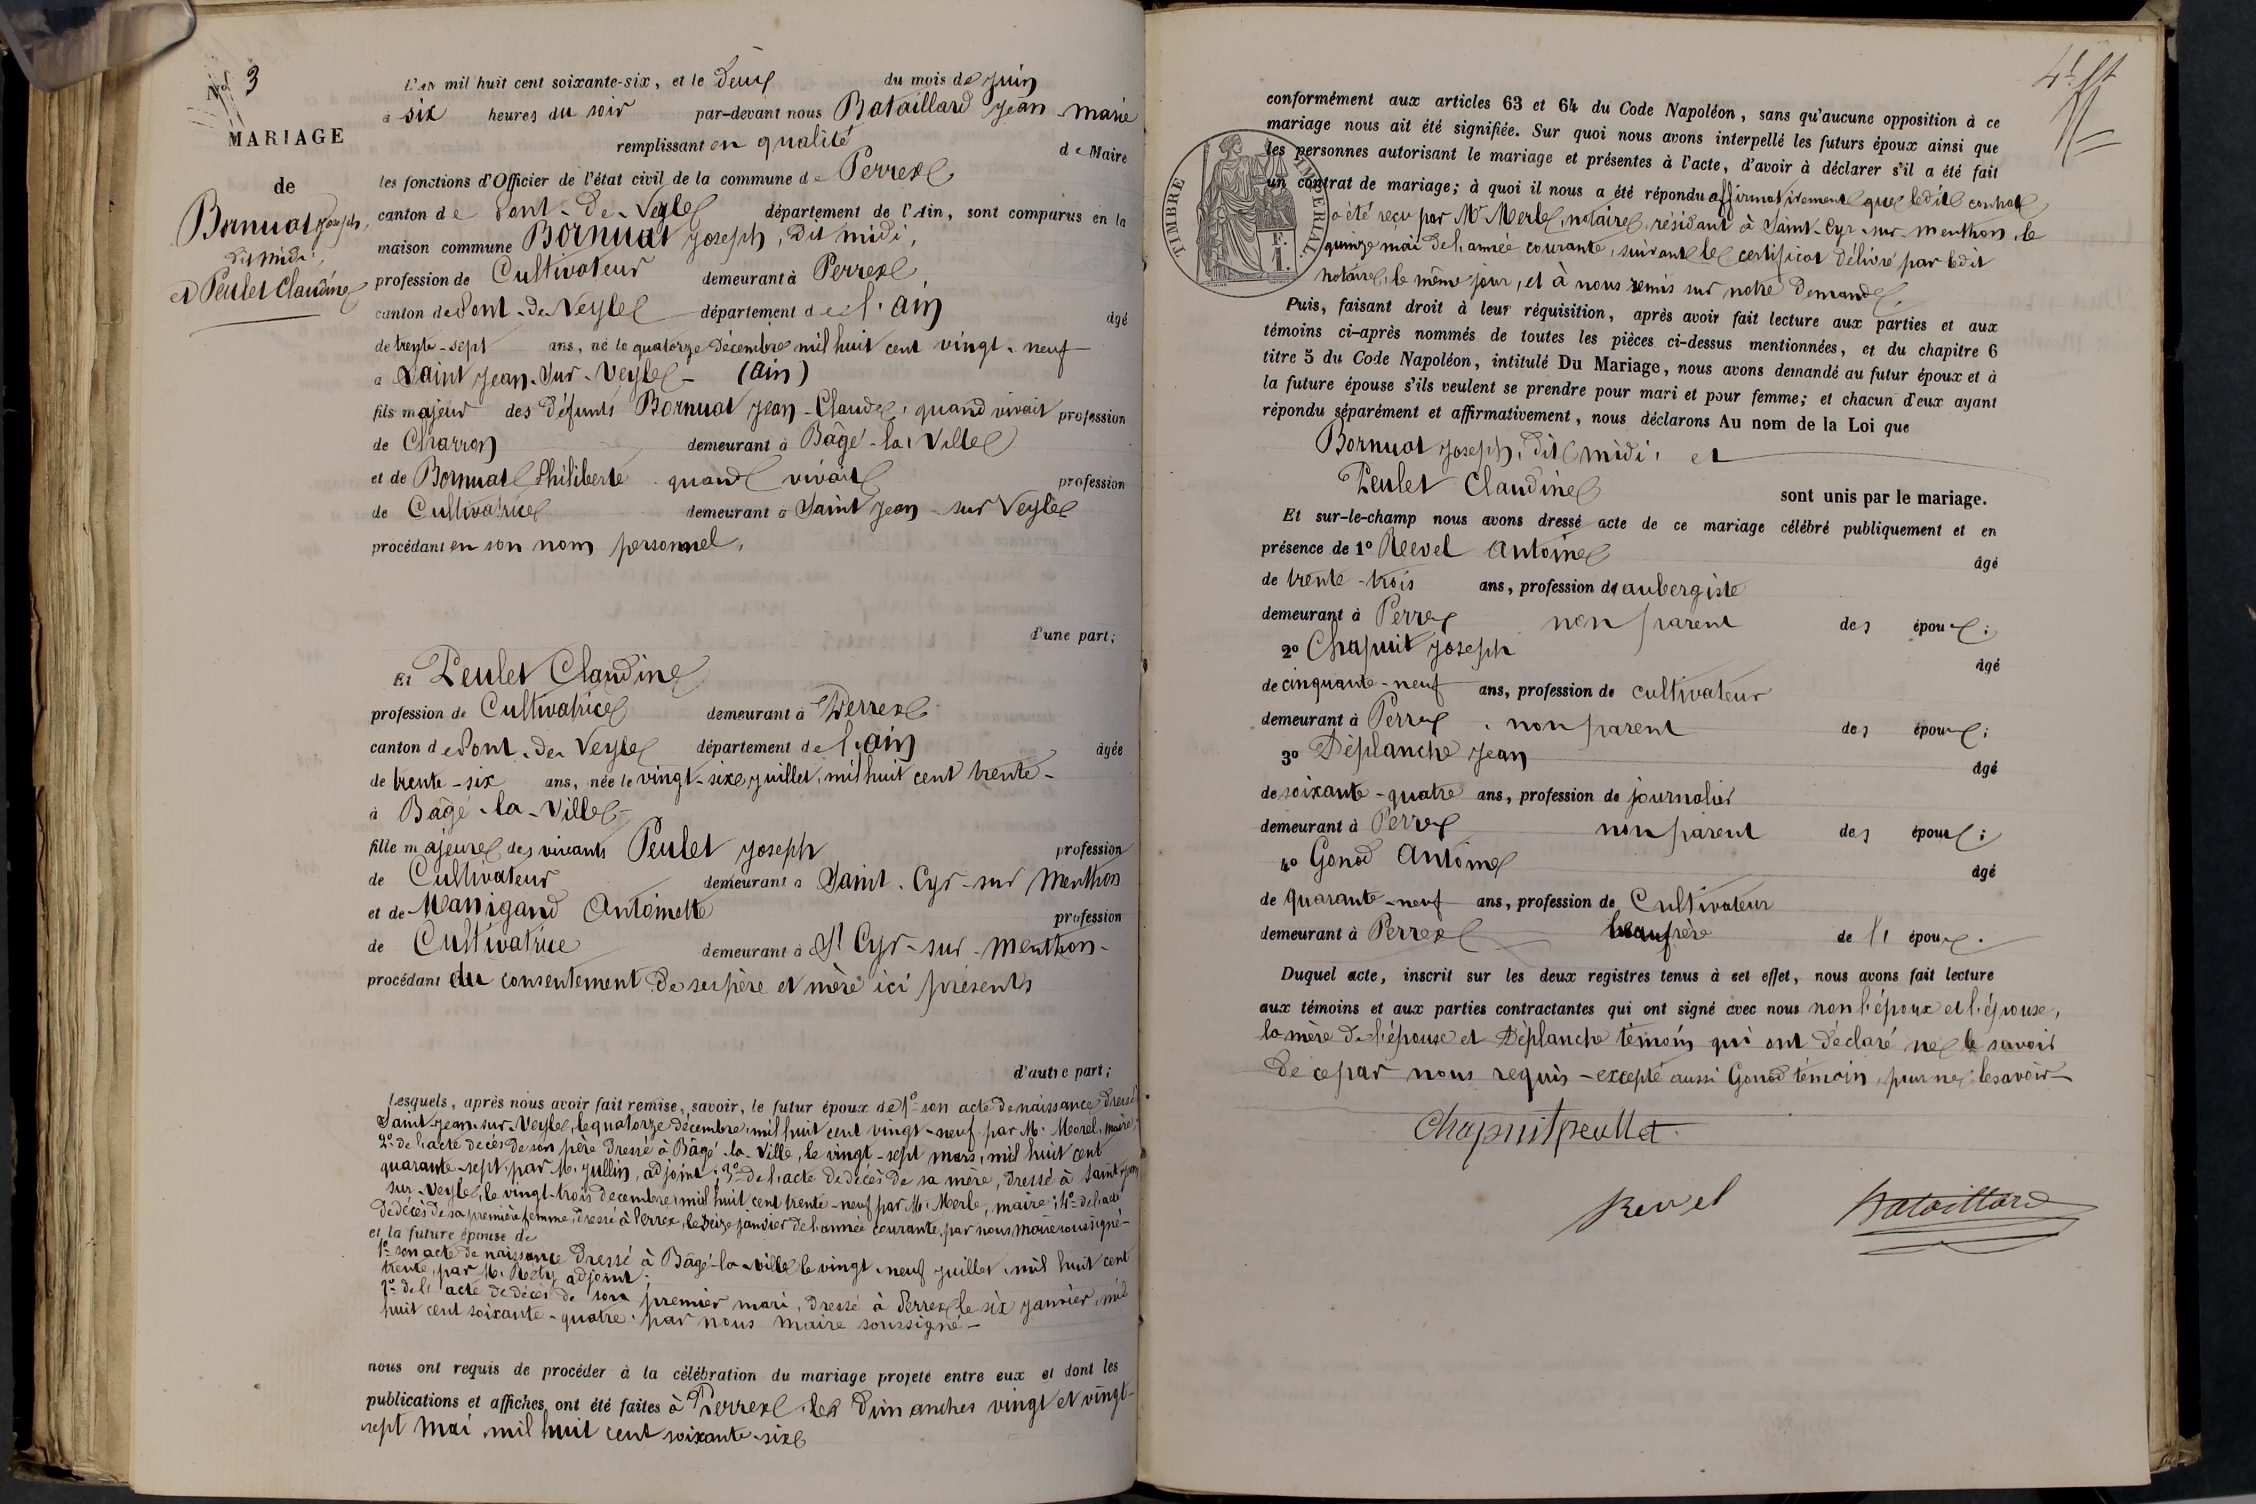 No 3
MARIAGE
de
Bornuat Joseph,
dit midi,
et Peulet Claudine
L'an mil huit cent soixante-six, et le deux du mois de Juin
à six heures du soir par-devant nous Bataillard Jean-Marie
remplissant en qualité de Maire
les fonctions d'Officier de l'état civil de la commune de Perrex
canton de Pont-de-Veyle département de l'Ain, sont comparus en la
maison commune Bornuat Joseph, dit midi,
profession de Cultivateur demeurant à Perrex
canton de Pont-de-Veyle département de l'ain âgé
de trente-sept ans, né le quatorze décembre mil huit cent vingt-neuf
à Saint Jean-Sur-Veyle - (Ain)
fils majeur des défunts Bornuat Jean-Claude, quand vivait profession
de Charron demeurant à Bâgé-la-Ville
et de Bornuat Philiberte quand vivait profession
de Cultivatrice demeurant à Saint Jean-sur Veyle
procédant en son nom personnel,
d'une part;
Et Peulet Claudine
profession de Cultivatrice demeurant à Perrex
canton de Pont-de-Veyle département de l'ain âgée
de trente-six ans, née le vingt-six juillet, mil huit cent trente-
à Bâgé-la-Ville-
fille majeure des vivants Peulet Joseph profession
de Cultivateur demeurant à Saint-Cyr-sur Menthon
et de Manigand Antoinette profession
de Cultivatrice demeurant à St Cyr-sur-Menthon-
procédant du consentement de ses père et mère ici présents
d'autre part;
Lesquels, après nous avoir fait remise, savoir, le futur époux de 1o son acte de naissance dressé
Saint-Jean-sur-Veyle, le quatorze décembre, mil huit cent vingt-neuf par M. Morel, maire,
2o de l'acte décès de son père dressé à Bâgé-la-Ville, le vingt-sept mars, mil huit cent
quarante-sept, par M. Jullin, adjoint; 3o de l'acte de décès de sa mère, dressé à Saint-Jean
sur-Veyle, le vingt-trois décembre, mil huit cent trente-neuf par M. Merle, maire; 4o de l'acte
de décès de sa première femme, dressé à Perrex, le seize janvier de l'année courante, par nous maire soussigné-
et la future épouse de
1o son acte de naissance dressé à Bâgé-la-Ville le vingt-neuf juillet, mil huit cent
trente, par M. adjoint;
2o de l'acte de décès de son premier mari, dressé à Perrex le six janvier, mil
huit cent soixante-quatre, par nous maire soussigné-
nous ont requis de procéder à la célébration du mariage projeté entre eux et dont les
publications et affiches ont été faites à Perrex les dimanches vingt et vingt-
sept mai, mil huit cent soixante-six
conformément aux articles 63 et 64 du Code Napoléon, sans qu'aucune opposition à ce
mariage nous ait été signifiée. Sur quoi nous avons interpellé les futurs époux ainsi que
les personnes autorisant le mariage et présentes à l'acte, d'avoir à déclarer s'il a été fait
un contrat de mariage; à quoi il nous a été répondu affirmativement que ledit contrat
a été reçu par Me Merle, notaire, résidant à Saint-Cyr-sur-Menthon, le
quinze mai de l'année courante, suivant le certificat délivré par ledit
notaire, le même jour, et à nous remis sur notre demande,
TIMBRE IMPÉRIAL.
1 F.
Puis, faisant droit à leur réquisition, après avoir fait lecture aux parties et aux
témoins ci-après nommés de toutes les pièces ci-dessus mentionnées, et du chapitre 6
titre 5 du Code Napoléon, intitulé Du Mariage, nous avons demandé au futur époux et à
la future épouse s'ils veulent se prendre pour mari et pour femme; et chacun d'eux ayant
répondu séparément et affirmativement, nous déclarons Au nom de la Loi que
Bornuat Joseph, dit midi, et
Peulet Claudine
sont unis par le mariage.
Et sur-le-champ nous avons dressé acte de ce mariage célébré publiquement et en
présence de 1o Revel Antoine âgé
de trente-trois ans, profession de aubergiste
demeurant à Perrex non parent des époux;
2o Chapuit Joseph âgé
de cinquante-neuf ans, profession de cultivateur
demeurant à Perrex, non parent des époux;
3o Déplanche Jean âgé
de soixante-quatre ans, profession de journalier
demeurant à Perrex non parent des époux;
4o Gonod Antoine âgé
de quarante-neuf ans, profession de Cultivateur
demeurant à Perrex beaufrère de l'époux.
Duquel acte, inscrit sur les deux registres tenus à cet effet, nous avons fait lecture
aux témoins et aux parties contractantes qui ont signé avec nous non l'époux et l'épouse,
la mère de l'épouse et Déplanche témoin qui ont déclaré ne le savoir
de ce par nous requis - excepté aussi Gonod témoin, pour ne le savoir-
Chapuit peullet
Revel
Bataillard